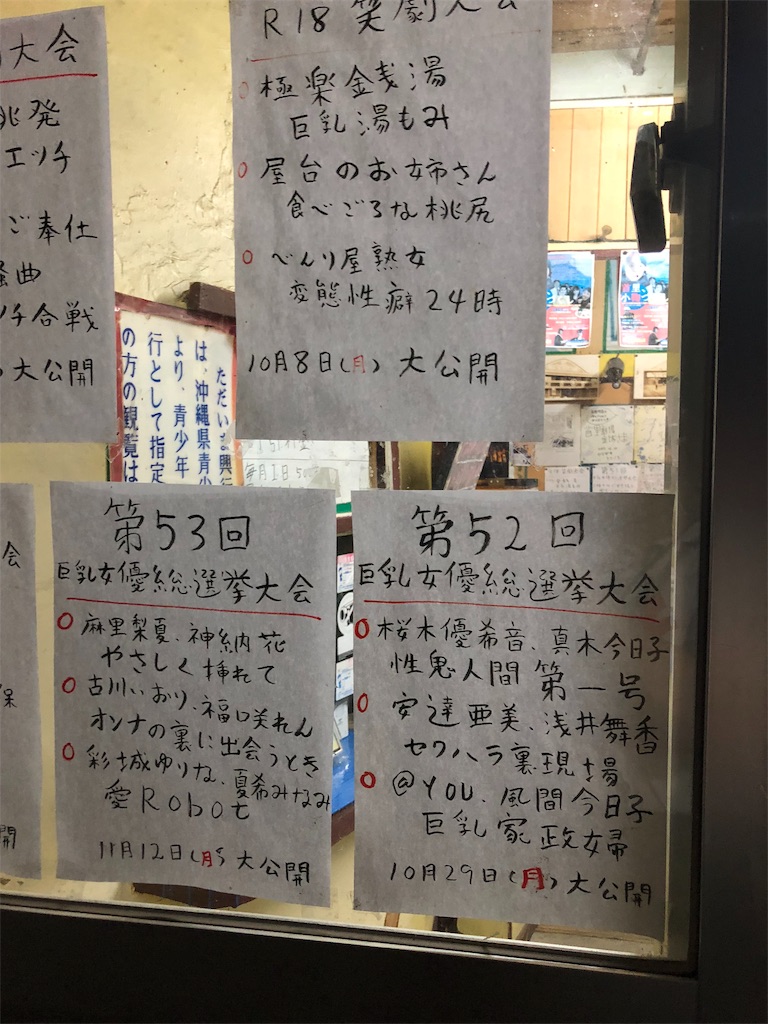 大会
挑発
エッチ
ご奉仕
騒曲
ッチ合戦
大公開
R18 笑劇大会
極楽金銭湯
巨乳湯もみ
屋台のお姉さん
食べごろな桃尻
べんり屋熟女
変態性癖24時
10月8日(月) 大公開
ただいま興行
は、沖縄県青少
より、青少年
行として指定
の方の観覧は
会
開
第53回
巨乳女優総選挙大会
麻里梨夏、神納花
やさしく挿れて
古川いおり、福咲れん
オンナの裏に出会うとき
彩城ゆりな、夏希みなみ
愛Robot
11月12日(月) 大公開
第52回
巨乳女優総選挙大会
桜木優希音、真木今日子
性鬼人間第一号
安達亜美、浅井舞香
セクハラ裏現場
@YOU、風間今日子
巨乳家政婦
10月29日(月) 大公開